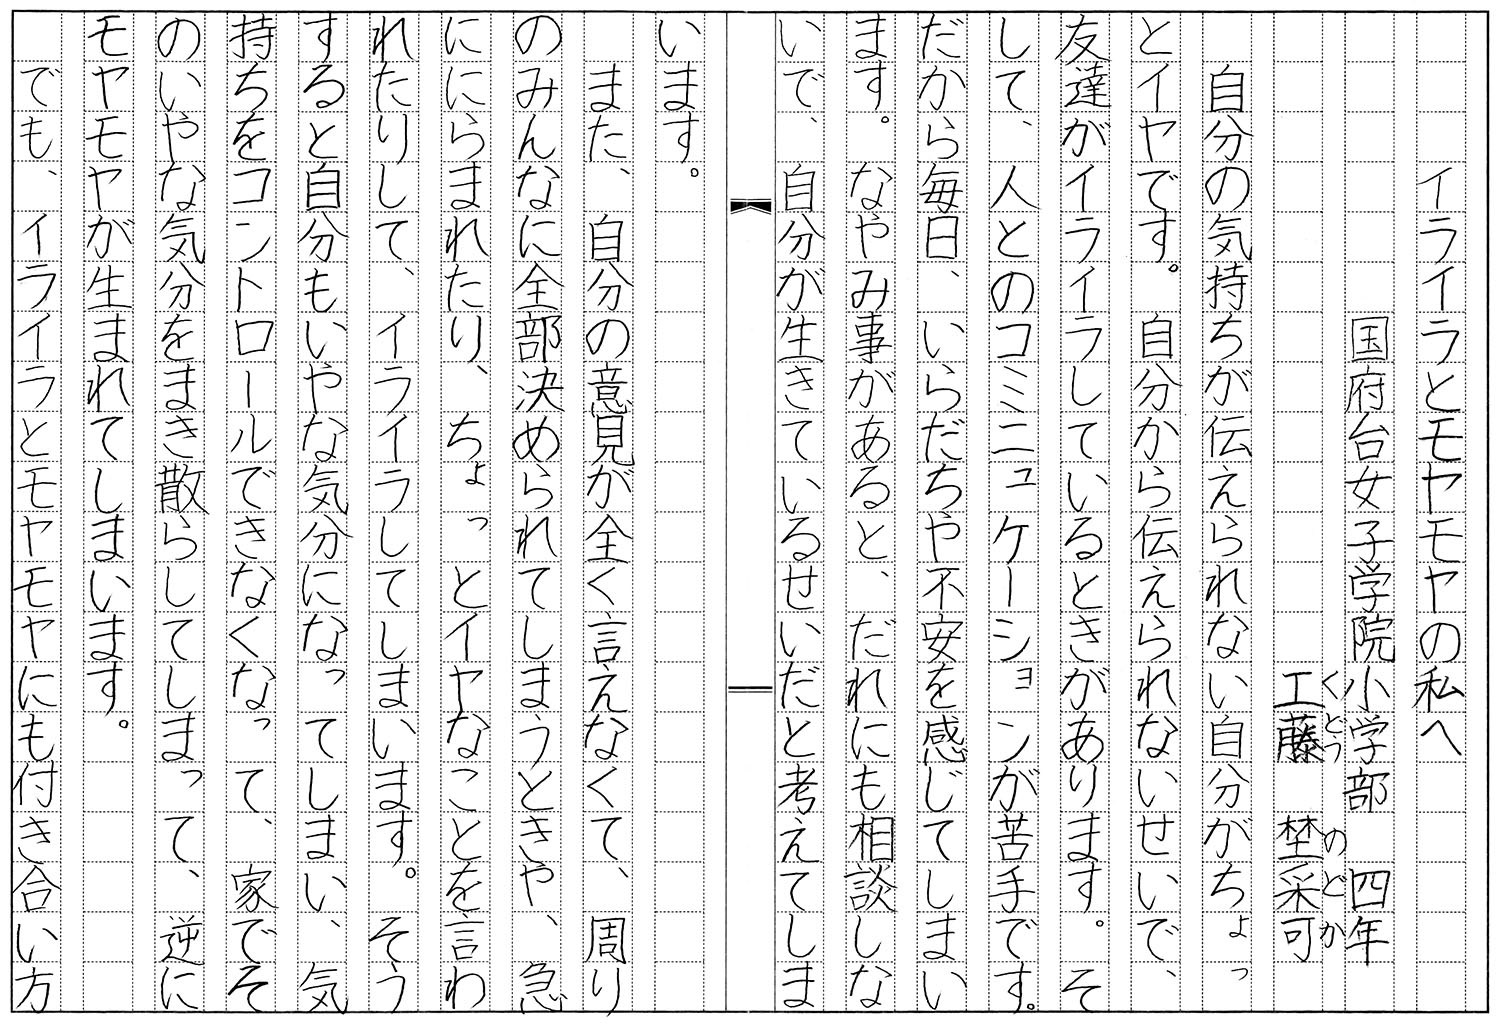 イライラとモヤモヤの私へ
国府台女子学院小学部 四年
工藤 埜采可
くどう のどか
自分の気持ちが伝えられない自分がちょっ
とイヤです。自分から伝えられないせいで、
友達がイライラしているときがあります。そ
して、人とのコミニュケーションが苦手です。
だから毎日、いらだちや不安を感じてしまい
ます。なやみ事があると、だれにも相談しな
いで、自分が生きているせいだと考えてしま
います。
また、自分の意見が全く言えなくて、周り
のみんなに全部決められてしまうときや、急
ににらまれたり、ちょっとイヤなことを言わ
れたりして、イライラしてしまいます。そう
すると自分もいやな気分になってしまい、気
持ちをコントロールできなくなって、家でそ
のいやな気分をまき散らしてしまって、逆に
モヤモヤが生まれてしまいます。
でも、イライラとモヤモヤにも付き合い方